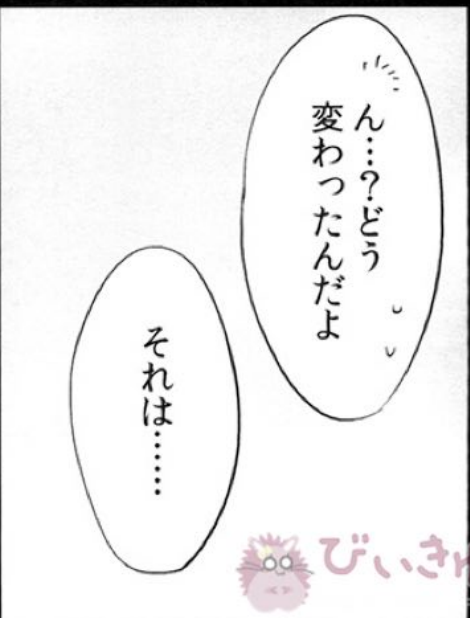 ん…？どう
変わったんだよ
それは……
びぃきゃ